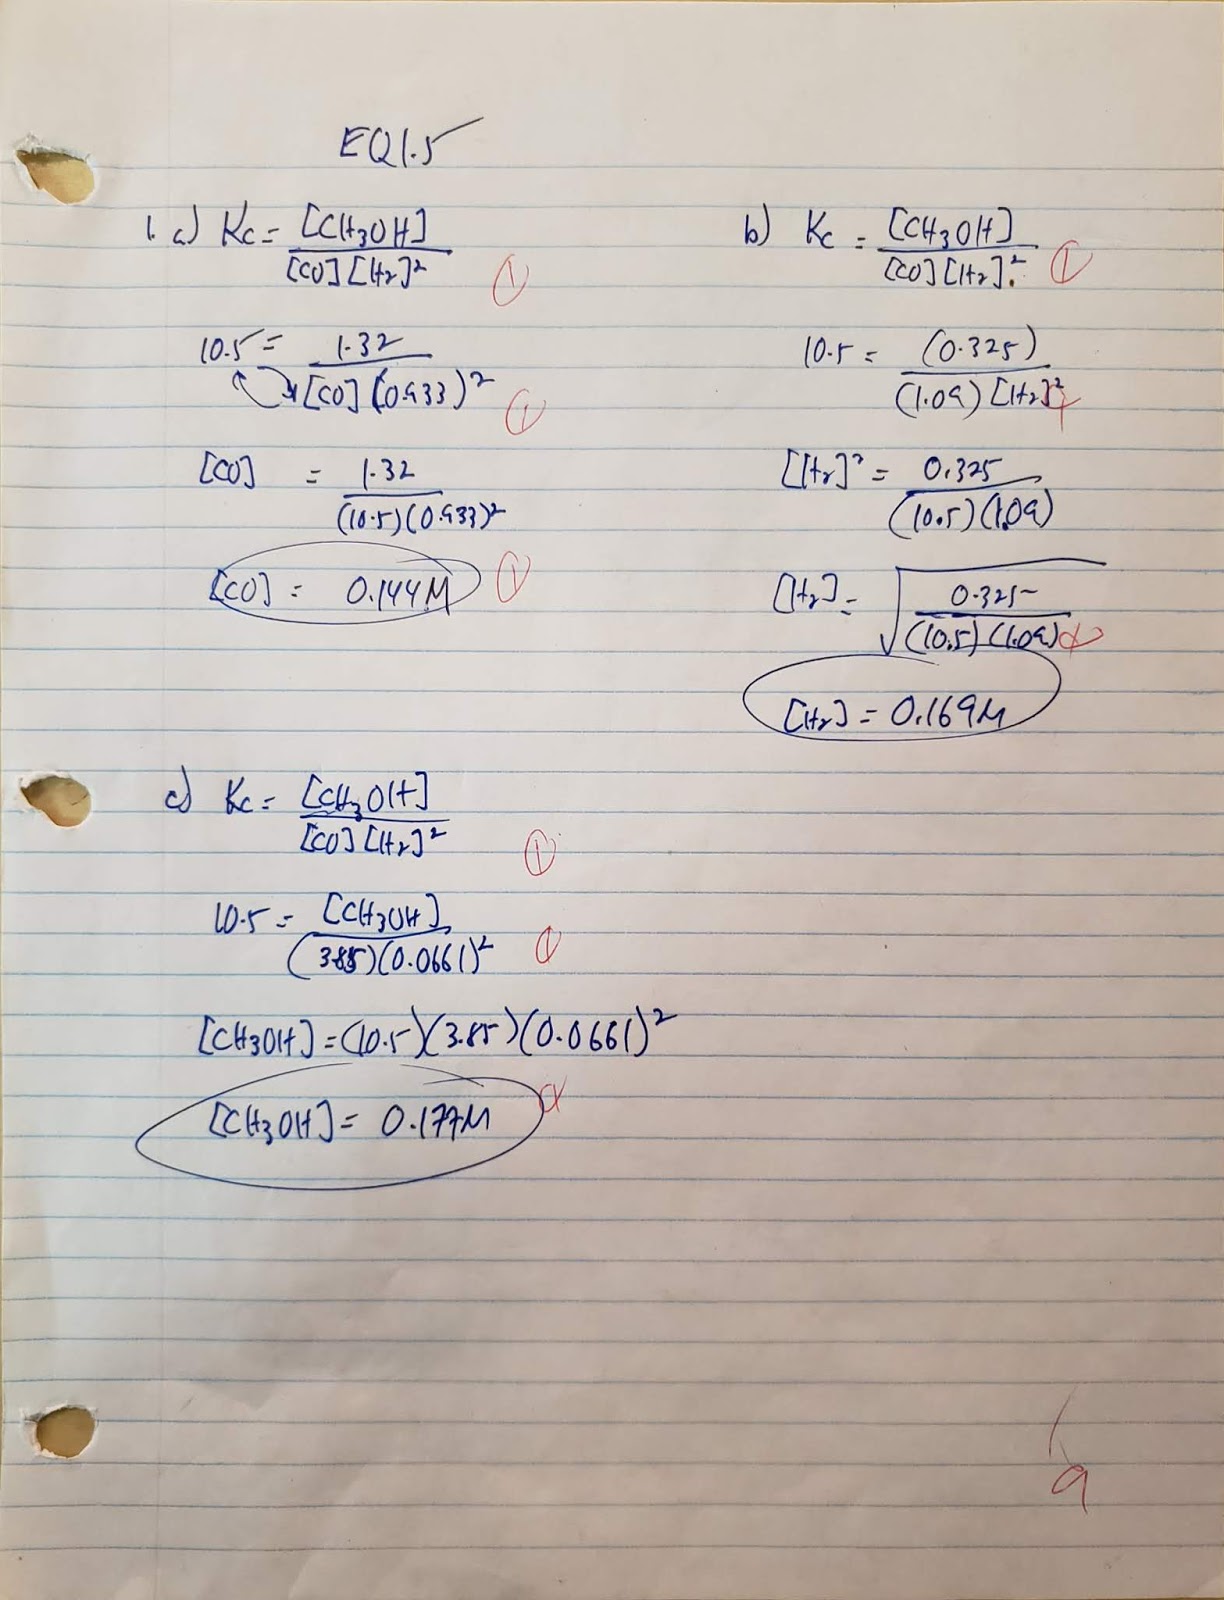 EQ1.5
1. a) Kc = [CH3OH]
[CO][H2]²
①
10.5 = 1.32
[CO](0.933)²
①
[CO] = 1.32
(10.5)(0.933)²
[CO] = 0.144M
①
b) Kc = [CH3OH]
[CO][H2]²
①
10.5 = (0.325)
(1.09)[H2]²
[H2]² = 0.325
(10.5)(1.09)
[H2] = √ 0.325
(10.5)(1.09)
[H2] = 0.169M
c) Kc = [CH3OH]
[CO][H2]²
①
10.5 = [CH3OH]
(3.85)(0.0661)²
①
[CH3OH] = (10.5)(3.85)(0.0661)²
[CH3OH] = 0.177M
9